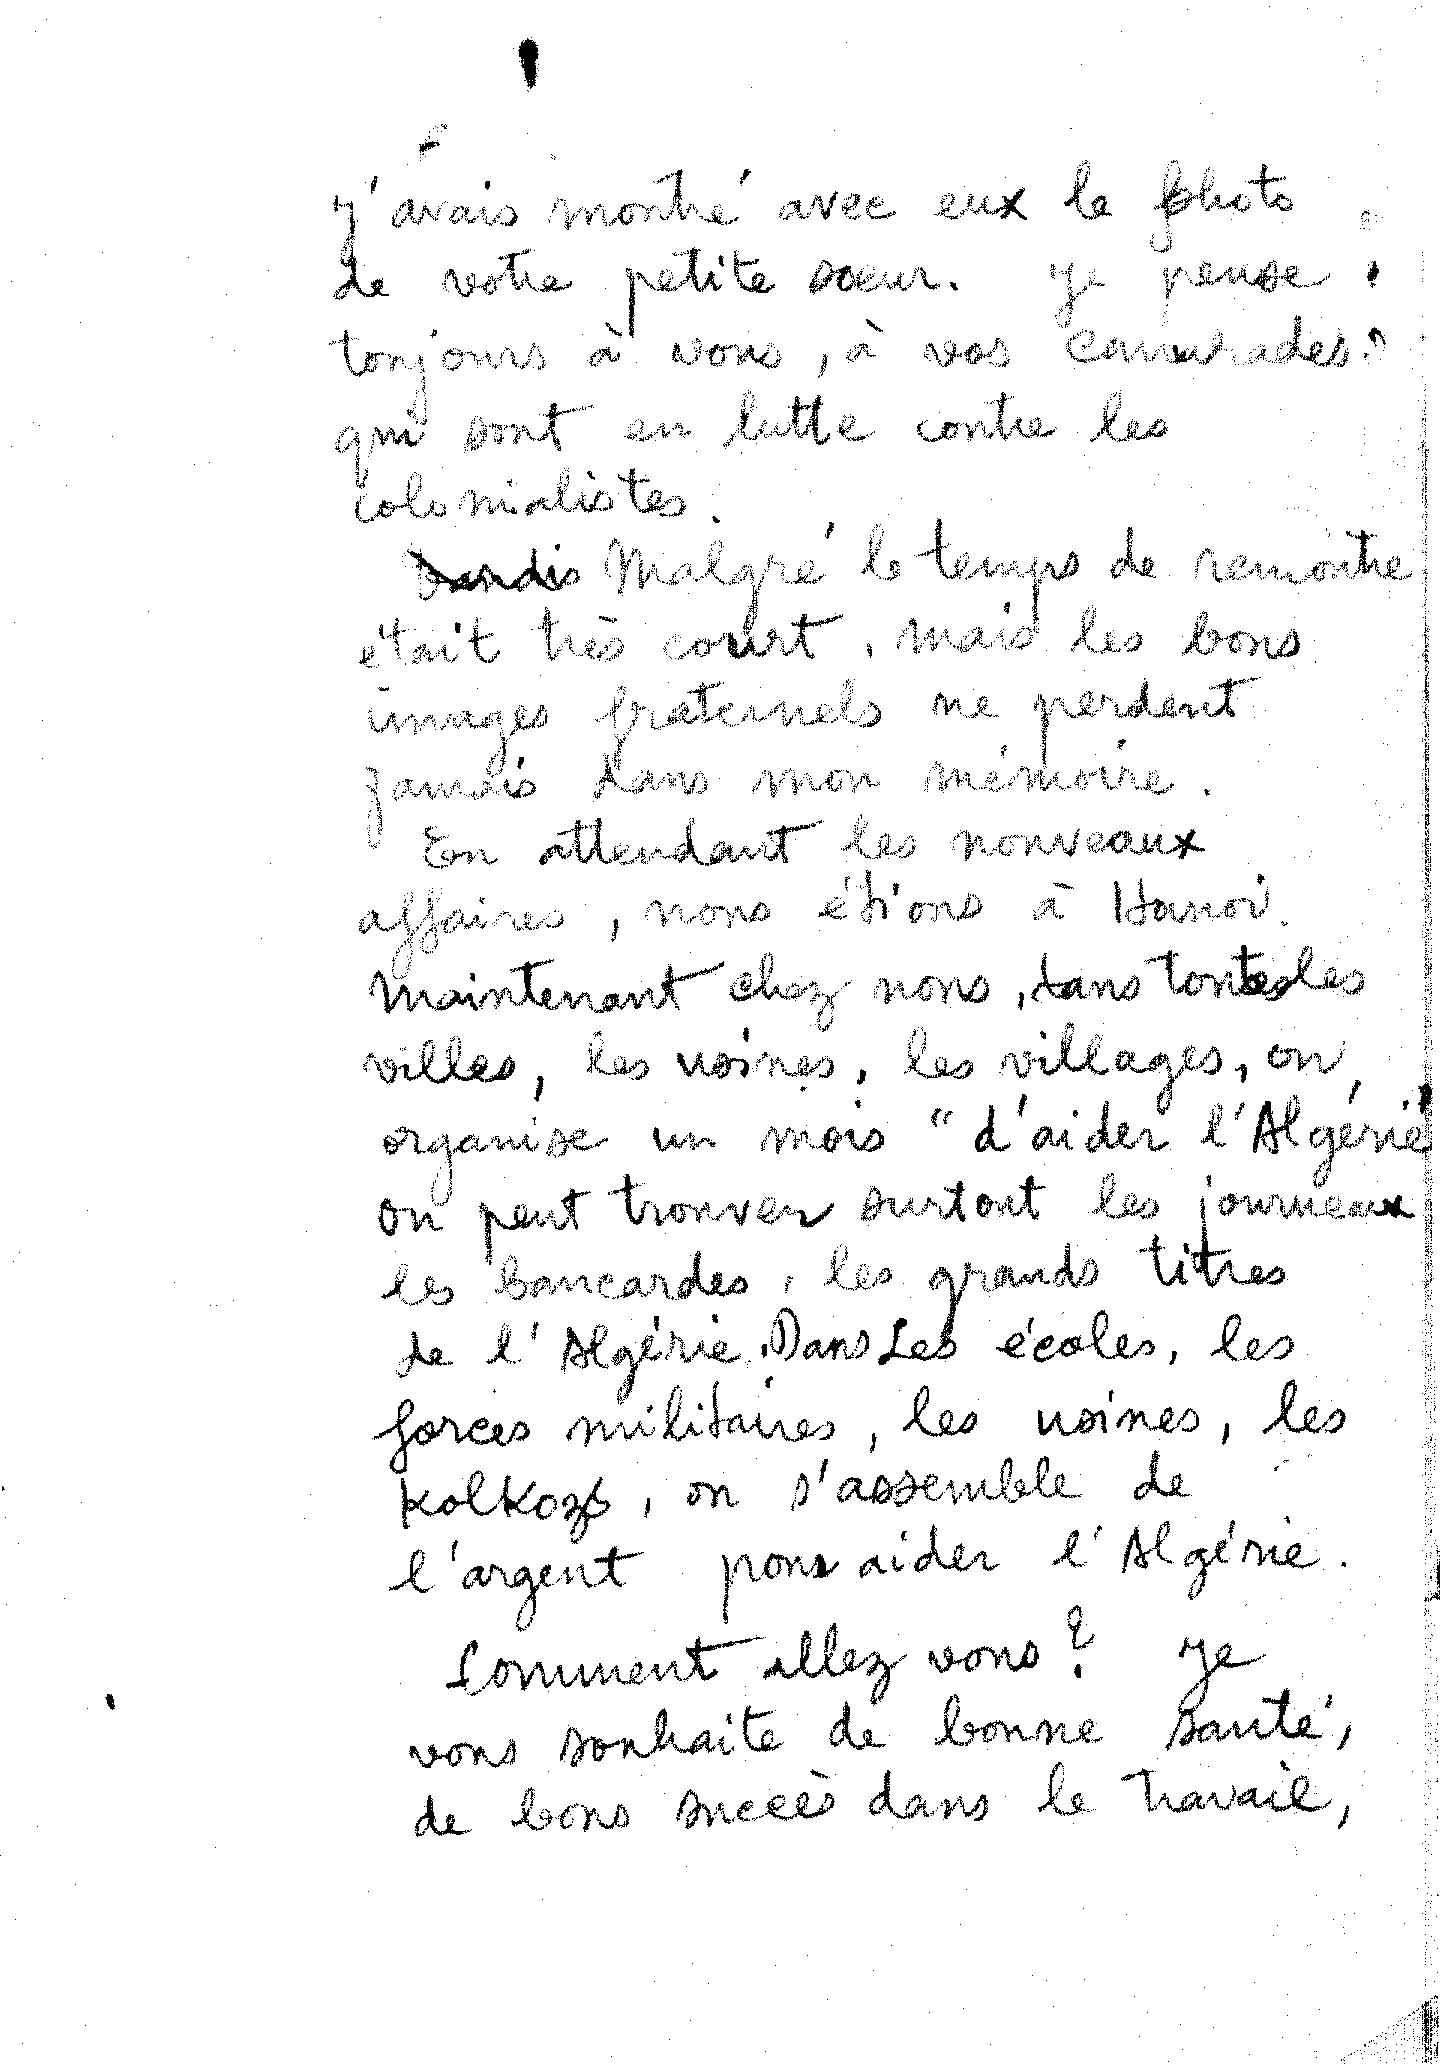 j'avais montré avec eux le photo
de votre petite sœur. Je pense
toujours à vous, à vos camarades
qui sont en lutte contre les
colonialistes.
Malgré le temps de remontre
était très court, mais les bons
images fraternels ne perdent
jamais dans mon mémoire.
En attendant les nouveaux
affaires, nous étions à Hanoi.
Maintenant chez nous, dans toutes les
villes, les usines, les villages, on
organise un mois "d'aider l'Algérie
on peut trouver surtout les journeaux
les bancardes, les grands titres
de l'Algérie. Dans Les écoles, les
forces militaires, les usines, les
Kolkozs, on s'assemble de
l'argent pour aider l'Algérie.
Comment allez vous? Je
vous souhaite de bonne santé,
de bons succès dans le travail,